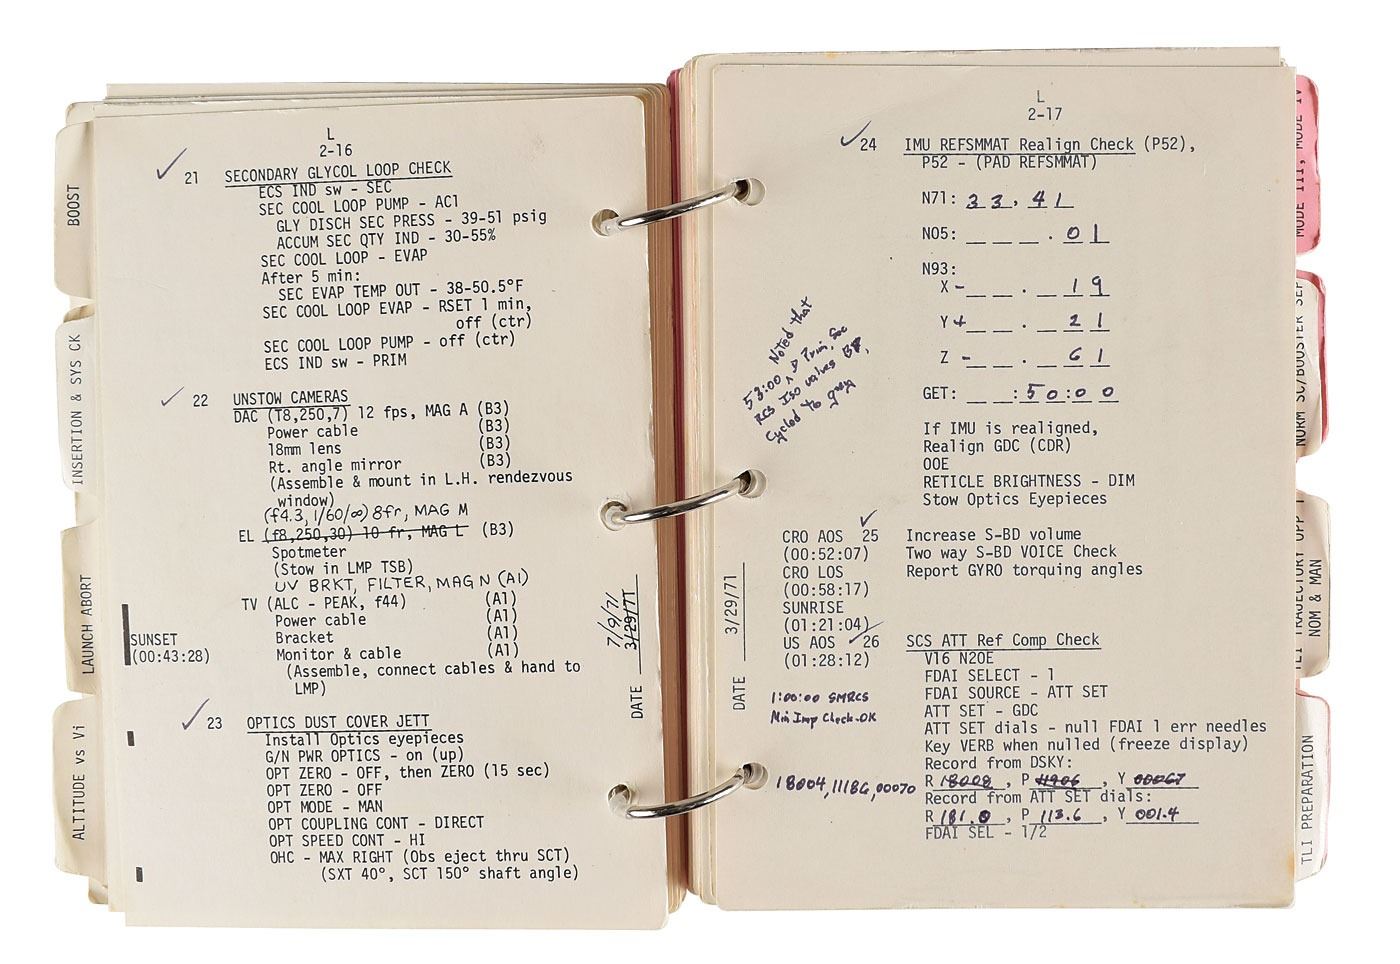 BOOST
INSERTION & SYS CK
LAUNCH ABORT
ALTITUDE vs Vi
L
2-16
21 SECONDARY GLYCOL LOOP CHECK
ECS IND sw - SEC
SEC COOL LOOP PUMP - AC1
GLY DISCH SEC PRESS - 39-51 psig
ACCUM SEC QTY IND - 30-55%
SEC COOL LOOP - EVAP
After 5 min:
SEC EVAP TEMP OUT - 38-50.5°F
SEC COOL LOOP EVAP - RSET 1 min,
off (ctr)
SEC COOL LOOP PUMP - off (ctr)
ECS IND sw - PRIM
22 UNSTOW CAMERAS
DAC (T8,250,7) 12 fps, MAG A (B3)
Power cable (B3)
18mm lens (B3)
Rt. angle mirror (B3)
(Assemble & mount in L.H. rendezvous
window)
(f4.3, 1/60/∞) 8fr, MAG M
EL (f8,250,30) 10 fr, MAG L (B3)
Spotmeter
(Stow in LMP TSB)
UV BRKT, FILTER, MAG N (A1)
TV (ALC - PEAK, f44) (A1)
Power cable (A1)
Bracket (A1)
Monitor & cable (A1)
(Assemble, connect cables & hand to
LMP)
SUNSET
(00:43:28)
23 OPTICS DUST COVER JETT
Install Optics eyepieces
G/N PWR OPTICS - on (up)
OPT ZERO - OFF, then ZERO (15 sec)
OPT ZERO - OFF
OPT MODE - MAN
OPT COUPLING CONT - DIRECT
OPT SPEED CONT - HI
OHC - MAX RIGHT (Obs eject thru SCT)
(SXT 40°, SCT 150° shaft angle)
7/9/71
DATE 3/29/71
L
2-17
24 IMU REFSMMAT Realign Check (P52),
P52 - (PAD REFSMMAT)
N71: 33, 41
N05: _ _ _ . 0 1
N93:
X - _ _ . _ 1 9
Y + _ _ . _ 2 1
Z - _ _ . _ 6 1
GET: _ _ : 5 0 : 0 0
If IMU is realigned,
Realign GDC (CDR)
OOE
RETICLE BRIGHTNESS - DIM
Stow Optics Eyepieces
Noted that
53:00 Prim, Sec
RCS Iso valves BP,
cycled to gray
CRO AOS 25 Increase S-BD volume
(00:52:07) Two way S-BD VOICE Check
CRO LOS Report GYRO torquing angles
(00:58:17)
SUNRISE
(01:21:04)
US AOS 26 SCS ATT Ref Comp Check
(01:28:12) V16 N20E
FDAI SELECT - 1
FDAI SOURCE - ATT SET
ATT SET - GDC
ATT SET dials - null FDAI 1 err needles
Key VERB when nulled (freeze display)
Record from DSKY:
R 18008, P 11906, Y 00067
Record from ATT SET dials:
R 181.0, P 113.6, Y 001.4
FDAI SEL - 1/2
1:00:00 SMRCS
Min Imp Check-OK
18004, 11186, 00070
DATE 3/29/71
MODE III, MODE IV
NORM SC/BOOSTER SEP
NOM & MAN
TLI PREPARATION